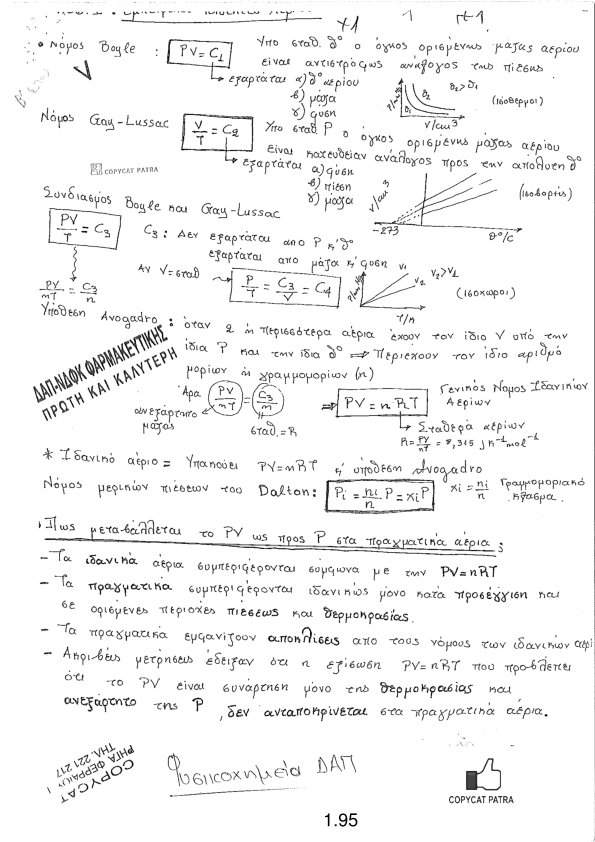 +1 1 π+1
• Νόμος Boyle : PV = C₁ Υπο σταθ. θ° ο όγκος ορισμένης μάζας αερίου
είναι αντιστρόφως ανάλογος της πίεσης.
εξαρτάται α) θ° αερίου
β) μάζα
γ) φύση
P/atm θ₂ > θ₁ θ₂ θ₁ V/cm³ (ισόθερμοι)
Νόμος Gay-Lussac V/T = C₂ Υπο σταθ. P ο όγκος ορισμένης μάζας αερίου
είναι κατευθείαν ανάλογος προς την απόλυτη θ°
εξαρτάται α) φύση
β) πίεση
γ) μάζα
COPYCAT PATRA
V/cm³ -273 θ°/C (ισοβαρείς)
Συνδιασμός Boyle και Gay-Lussac
PV/T = C₃ C₃ : Δεν εξαρτάται απο P κ' θ°
εξαρτάται απο μάζα κ' φύση
Αν V = σταθ P/T = C₃/V = C₄
V₁ V₂ V₂ > V₁ T/K (ισόχωροι)
PV/nT = C₃/n
Υπόθεση Avogadro : όταν 2 ή περισσότερα αέρια έχουν τον ίδιο V υπό την
ίδια P και την ίδια θ° ⇒ Περιέχουν τον ίδιο αριθμό
μορίων ή γραμμομορίων (n)
ΔΑΠ-ΝΔΦΚ ΦΑΡΜΑΚΕΥΤΙΚΗΣ
ΠΡΩΤΗ ΚΑΙ ΚΑΛΥΤΕΡΗ
Άρα PV/nT = C₃/n ⇒ PV = nRT Γενικός Νόμος Ιδανικών
Αερίων
ανεξάρτητο
μάζας
σταθ. = R
Σταθερά αερίων
R = PV/nT = 8,315 J K⁻¹ mol⁻¹
* Ιδανικό αέριο = Υπακούει PV=nRT κ' υπόθεση Avogadro
Νόμος μερικών πιέσεων του Dalton: Pi = ni/n P = xi P xi = ni/n Γραμμομοριακό
κλάσμα.
• Πως μεταβάλλεται το PV ως προς P στα πραγματικά αέρια ;
- Τα ιδανικά αέρια συμπεριφέρονται σύμφωνα με την PV=nRT
- Τα πραγματικά συμπεριφέρονται ιδανικώς μόνο κατά προσέγγιση και
σε ορισμένες περιοχές πιέσεως και θερμοκρασίας.
- Τα πραγματικά εμφανίζουν αποκλίσεις απο τους νόμους των ιδανικών αερί
- Ακριβείς μετρήσεις έδειξαν ότι η εξίσωση PV=nRT που προβλέπει
ότι το PV είναι συνάρτηση μόνο της θερμοκρασίας και
ανεξάρτητο της P, δεν ανταποκρίνεται στα πραγματικά αέρια.
COPYCAT
ΡΗΓΑ ΦΕΡΡΑΙΟΥ 1
ΤΗΛ. 221 217
Φυσικοχημεία ΔΑΠ
COPYCAT PATRA
1.95